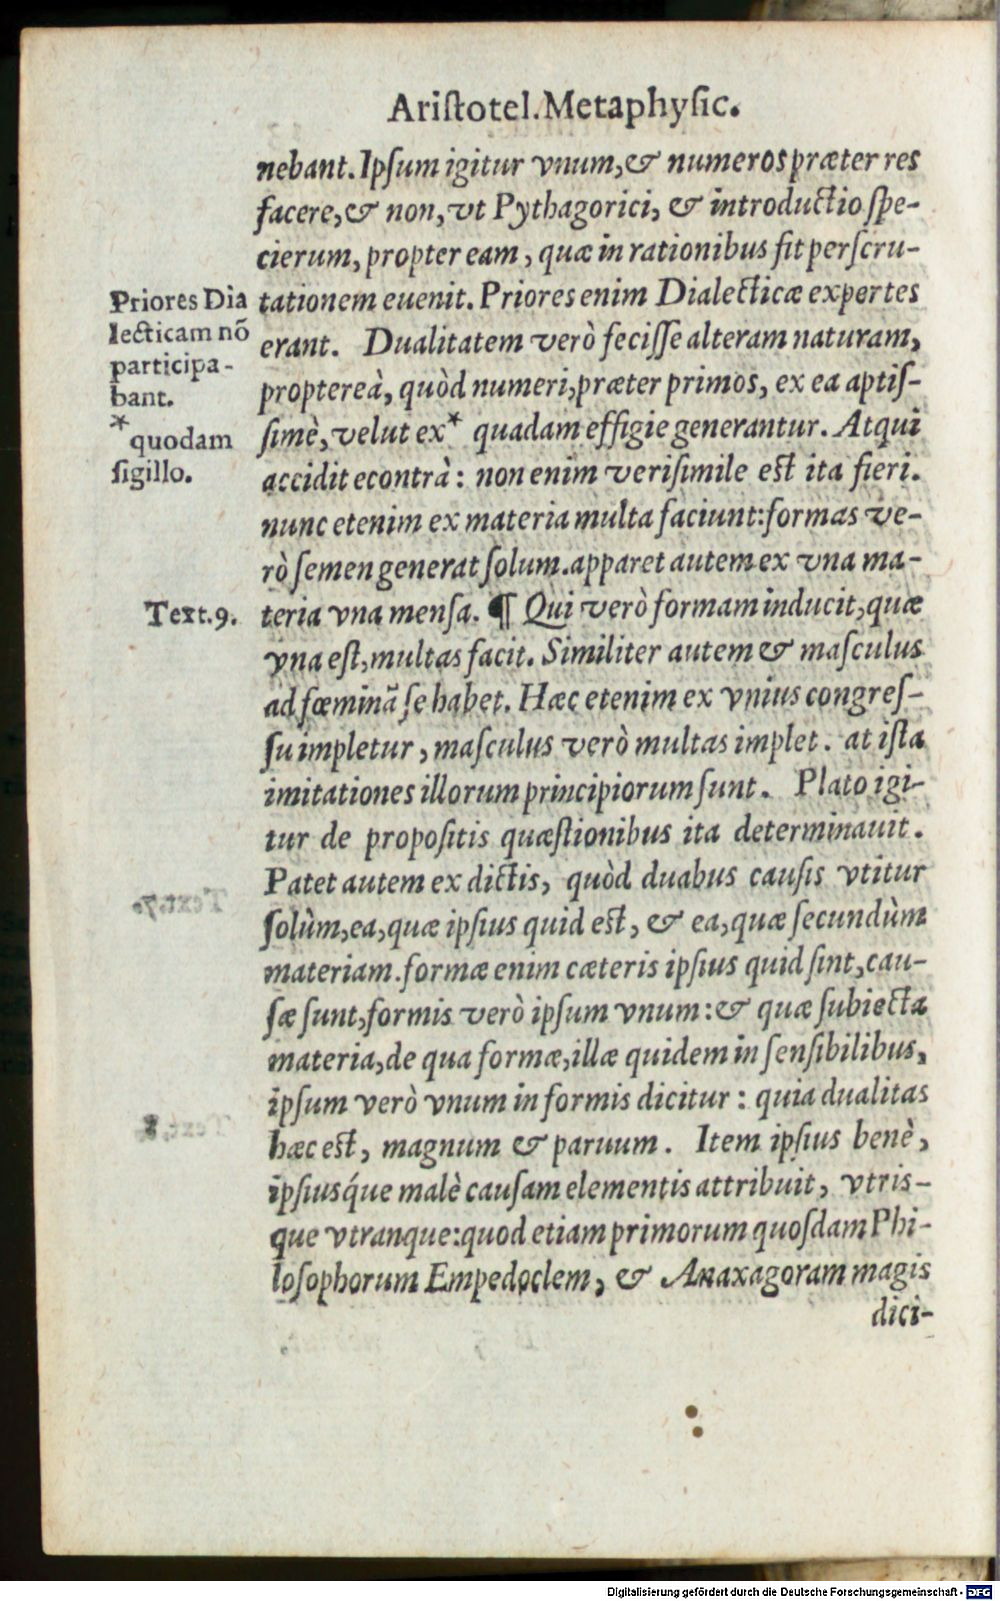 Ariſtotel.Metaphyſic.
nebant. Ipſum igitur vnum, & numeros præter res
facere, & non, vt Pythagorici, & introductio ſpe-
cierum, propter eam, quæ in rationibus fit perſcru-
tationem euenit. Priores enim Dialecticæ expertes
erant. Dualitatem verò feciſſe alteram naturam,
propter eà, quòd numeri, præter primos, ex ea aptiſ-
ſimè, velut ex* quadam effigie generantur. Atqui
accidit econtrà: non enim veriſimile eſt ita fieri.
nunc etenim ex materia multa faciunt: formas ve-
rò ſemen generat ſolum. apparet autem ex vna ma-
teria vna menſa. ¶ Qui verò formam inducit, quæ
vna eſt, multas facit. Similiter autem & maſculus
ad fœminã ſe habet. Hæc etenim ex vnius congreſ-
ſu impletur, maſculus verò multas implet. at iſta
imitationes illorum principiorum ſunt. Plato igi-
tur de propoſitis quæſtionibus ita determinauit.
Patet autem ex dictis, quòd duabus cauſis vtitur
ſolùm, ea, quæ ipſius quid eſt, & ea, quæ ſecundùm
materiam. formæ enim cæteris ipſius quid ſint, cau-
ſæ ſunt, formis verò ipſum vnum: & quæ ſubiecta
materia, de qua formæ, illæ quidem in ſenſibilibus,
ipſum verò vnum in formis dicitur: quia dualitas
hæc eſt, magnum & paruum. Item ipſius benè,
ipſiusq́ue malè cauſam elementis attribuit, vtriſ-
que vtranque: quod etiam primorum quoſdam Phi-
loſophorum Empedoclem, & Anaxagoram magis
dici-
Priores Dia
lecticam nõ
participa-
bant.
* quodam
ſigillo.
Text.9.
Digitalisierung gefördert durch die Deutsche Forschungsgemeinschaft - DFG